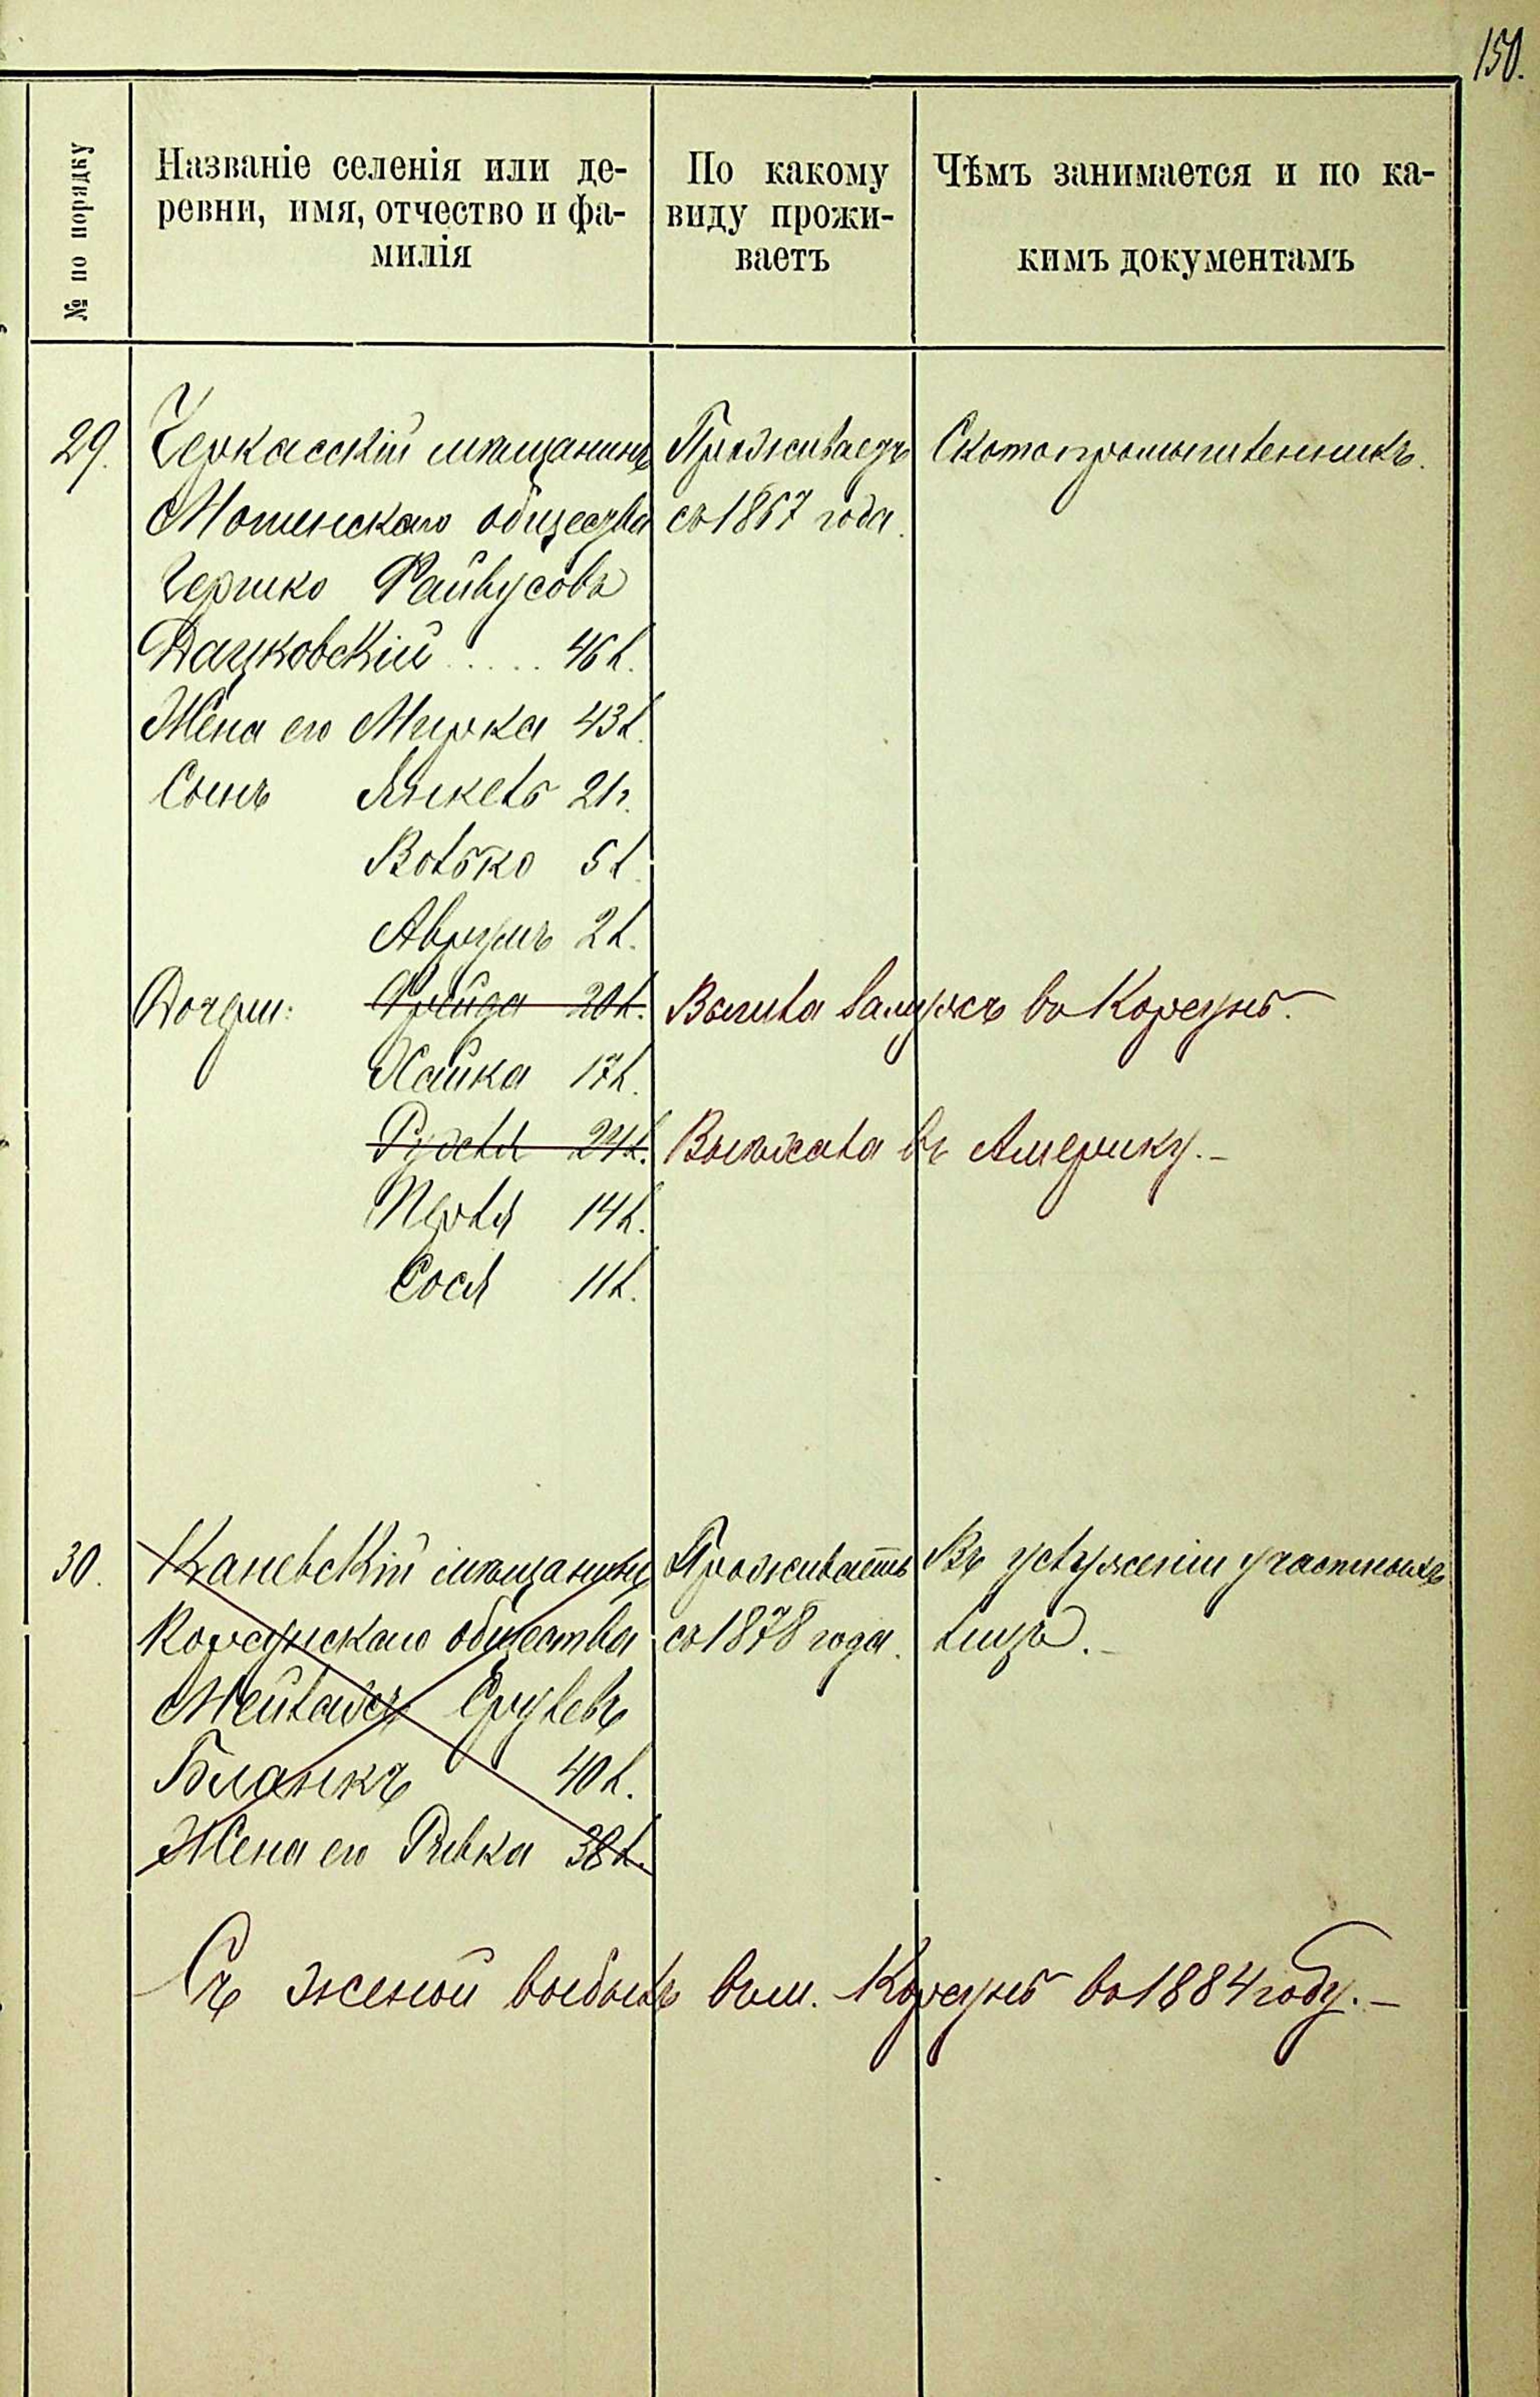 150.
№ по порядку
Названіе селенія или де-
ревни, имя, отчество и фа-
милія
По какому
виду прожи-
ваетъ
Чѣмъ занимается и по ка-
кимъ документамъ
29.
Черкасскій мѣщанинъ
Мошенскаго общества
Гершко Файвусовъ
Дацковскій ..... 46 л.
Жена его Мирка 43 л.
Сынъ Янкель 21 г.
Волько 5 л.
Аврумъ 2 л.
Дочери: Фрейда 20 л.
Хайка 17 л.
Рухля 24 л.
Перля 14 л.
Сося 11 л.
Проживаетъ
съ 1857 года.
Скотопромышленникъ.
Вышла замужъ въ Корсунь.
Выѣхала въ Америку.-
30.
Каневскій мѣщанинъ
Корсунскаго общества
Мейлахъ Срулевъ
Бланкъ 40 л.
Жена его Ривка 38 л.
Проживаетъ
съ 1878 года.
Въ услуженіи участныхъ
лицъ.-
Съ женой выбылъ въ м. Корсунь въ 1884 году.-